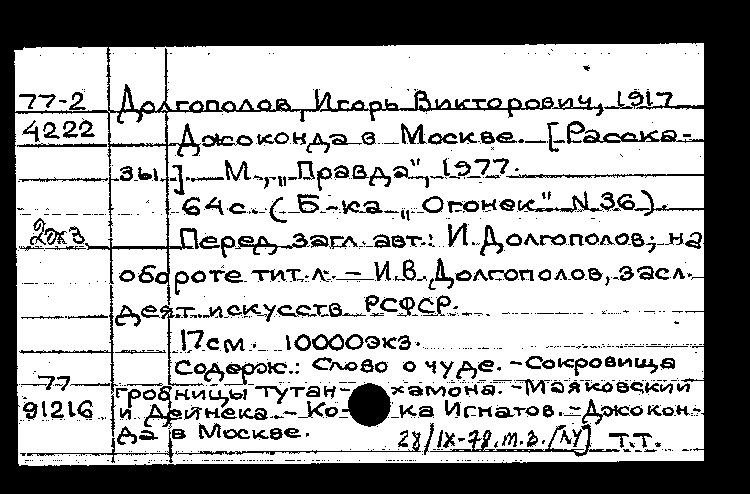 77-2 Долгополов, Игорь Викторович, 1917
4222 Джоконда в Москве. [Расска-
зы]. М., „Правда", 1977.
64с. (Б-ка „Огонек" N 36).
2экз Перед загл. авт.: И. Долгополов; на
обороте тит. л. - И.В. Долгополов, засл.
деят искусств РСФСР.
17см. 10000экз.
Содерж.: Слово о чуде. - Сокровища
77 гробницы Тутан- хамона. - Маяковский
91216 и Дейнека. - Ко- ка Игнатов. - Джокон-
да в Москве.
28/IX-78. т.з. Т.Т.